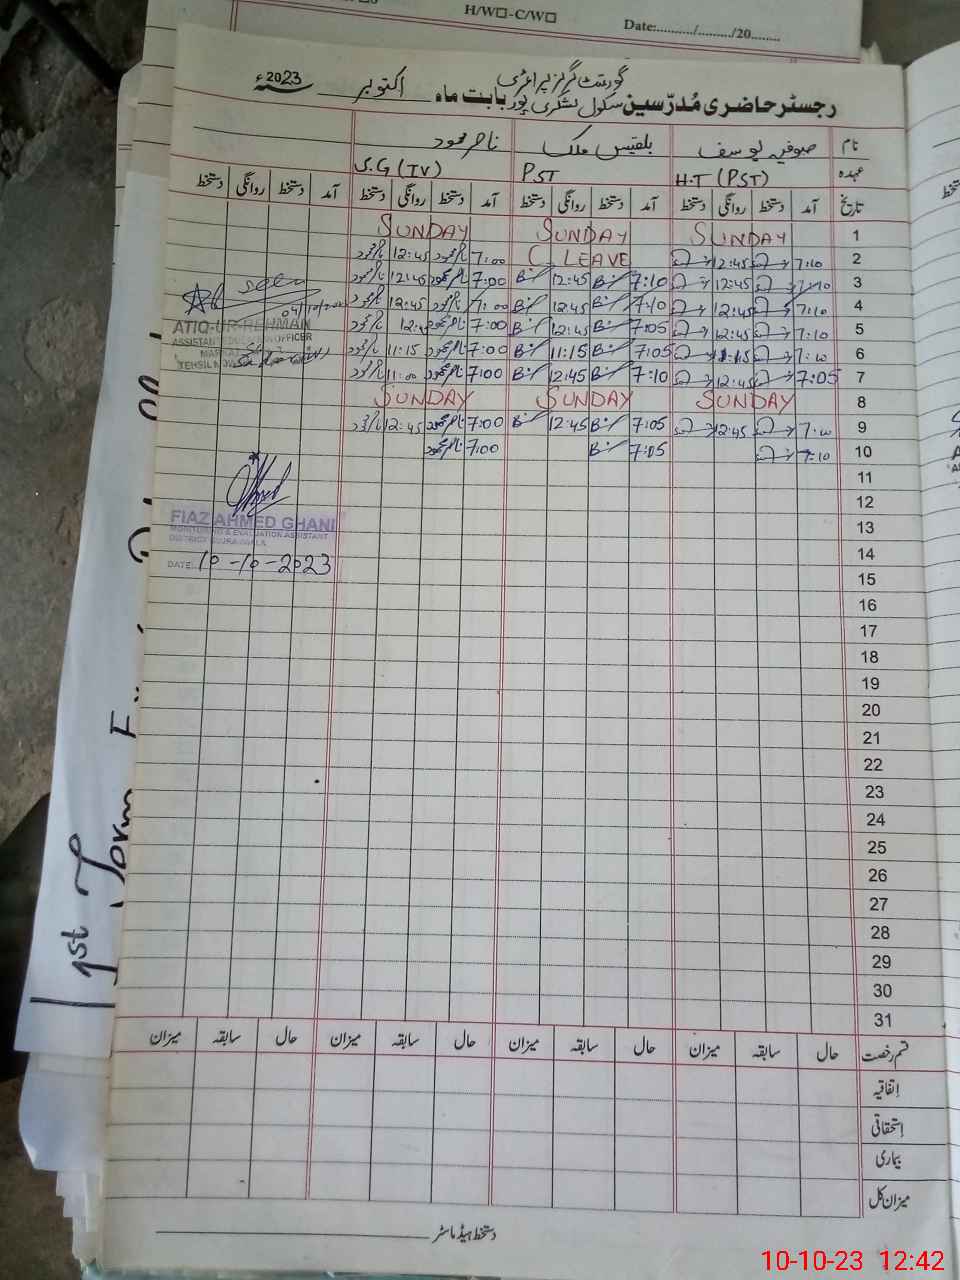 H/W□-C/W□
Date:........../........./20........
گورنمنٹ گرلز پرائمری
رجسٹر حاضری مُدرّسین سکول لشکری پور بابت ماہ اکتوبر 2023ء
نام صوفیہ یوسف بلقیس ملک ناصر محمود
عہدہ H.T (PST) PST C.G (IV)
تاریخ آمد دستخط روانگی دستخط آمد دستخط روانگی دستخط آمد دستخط روانگی دستخط آمد دستخط روانگی دستخط
1 SUNDAY SUNDAY SUNDAY
2 7:10 12:45 C. LEAVE 7:00 12:45
3 7:10 12:45 7:10 12:45 7:00 12:45
4 7:10 12:45 7:10 12:45 7:00 12:45
5 7:10 12:45 7:05 12:45 7:00
6 7:10 11:15 7:05 11:15 7:00 11:15
7 7:05 12:45 7:10 12:45 7:00 11:00
8 SUNDAY SUNDAY SUNDAY
9 7:10 12:45 7:05 12:45 7:00 12:45
10 7:10 7:05 7:00
11
12
13
14
15
16
17
18
19
20
21
22
23
24
25
26
27
28
29
30
31
seen
04/10/2023
ATIQ-UR-REHMAN
FIAZ AHMED GHANI
MONITORING & EVALUATION ASSISTANT
DISTRICT GUJRANWALA
DATE: 10-10-2023
قسم رخصت حال سابقہ میزان حال سابقہ میزان حال سابقہ میزان حال سابقہ میزان
اتفاقیہ
استحقاقی
بیماری
میزان کل
دستخط ہیڈ ماسٹر
1st Term
10-10-23 12:42